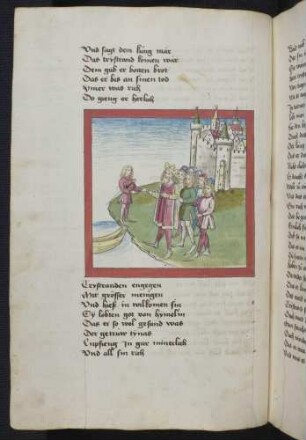 Vnd sagt dem küng mär
Das trystrand komen wär
Dem gab er botten brot
Das er bis an sinen tod
Ymer was rich
Do gieng er herlich
Trystranden engegen
Mit grosser mengen
Vnd hieß in wilkomen sin
Sy lobten got von hymelin
Das er so wol gesund was
Der getruw tynas
Empfieng In gar mineklich
Vnd all sin